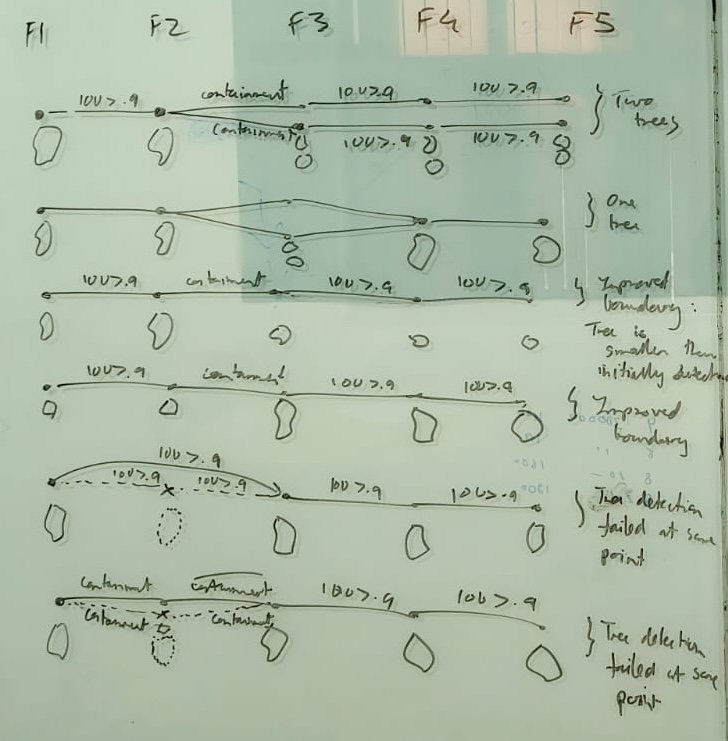 F1 F2 F3 F4 F5
IOU>.9 containment IOU>.9 IOU>.9
containment IOU>.9 IOU>.9
} Two
trees
} One
tree
IOU>.9 containment IOU>.9 IOU>.9
} Improved
boundary:
Tree is
smaller than
initially
IOU>.9 containment IOU>.9 IOU>.9
} Improved
boundary
IOU>.9
IOU>.9 x IOU>.9 IOU>.9 IOU>.9
} Tree detection
failed at some
point
containment containment IOU>.9 IOU>.9
containment x containment
} Tree detection
failed at some
point